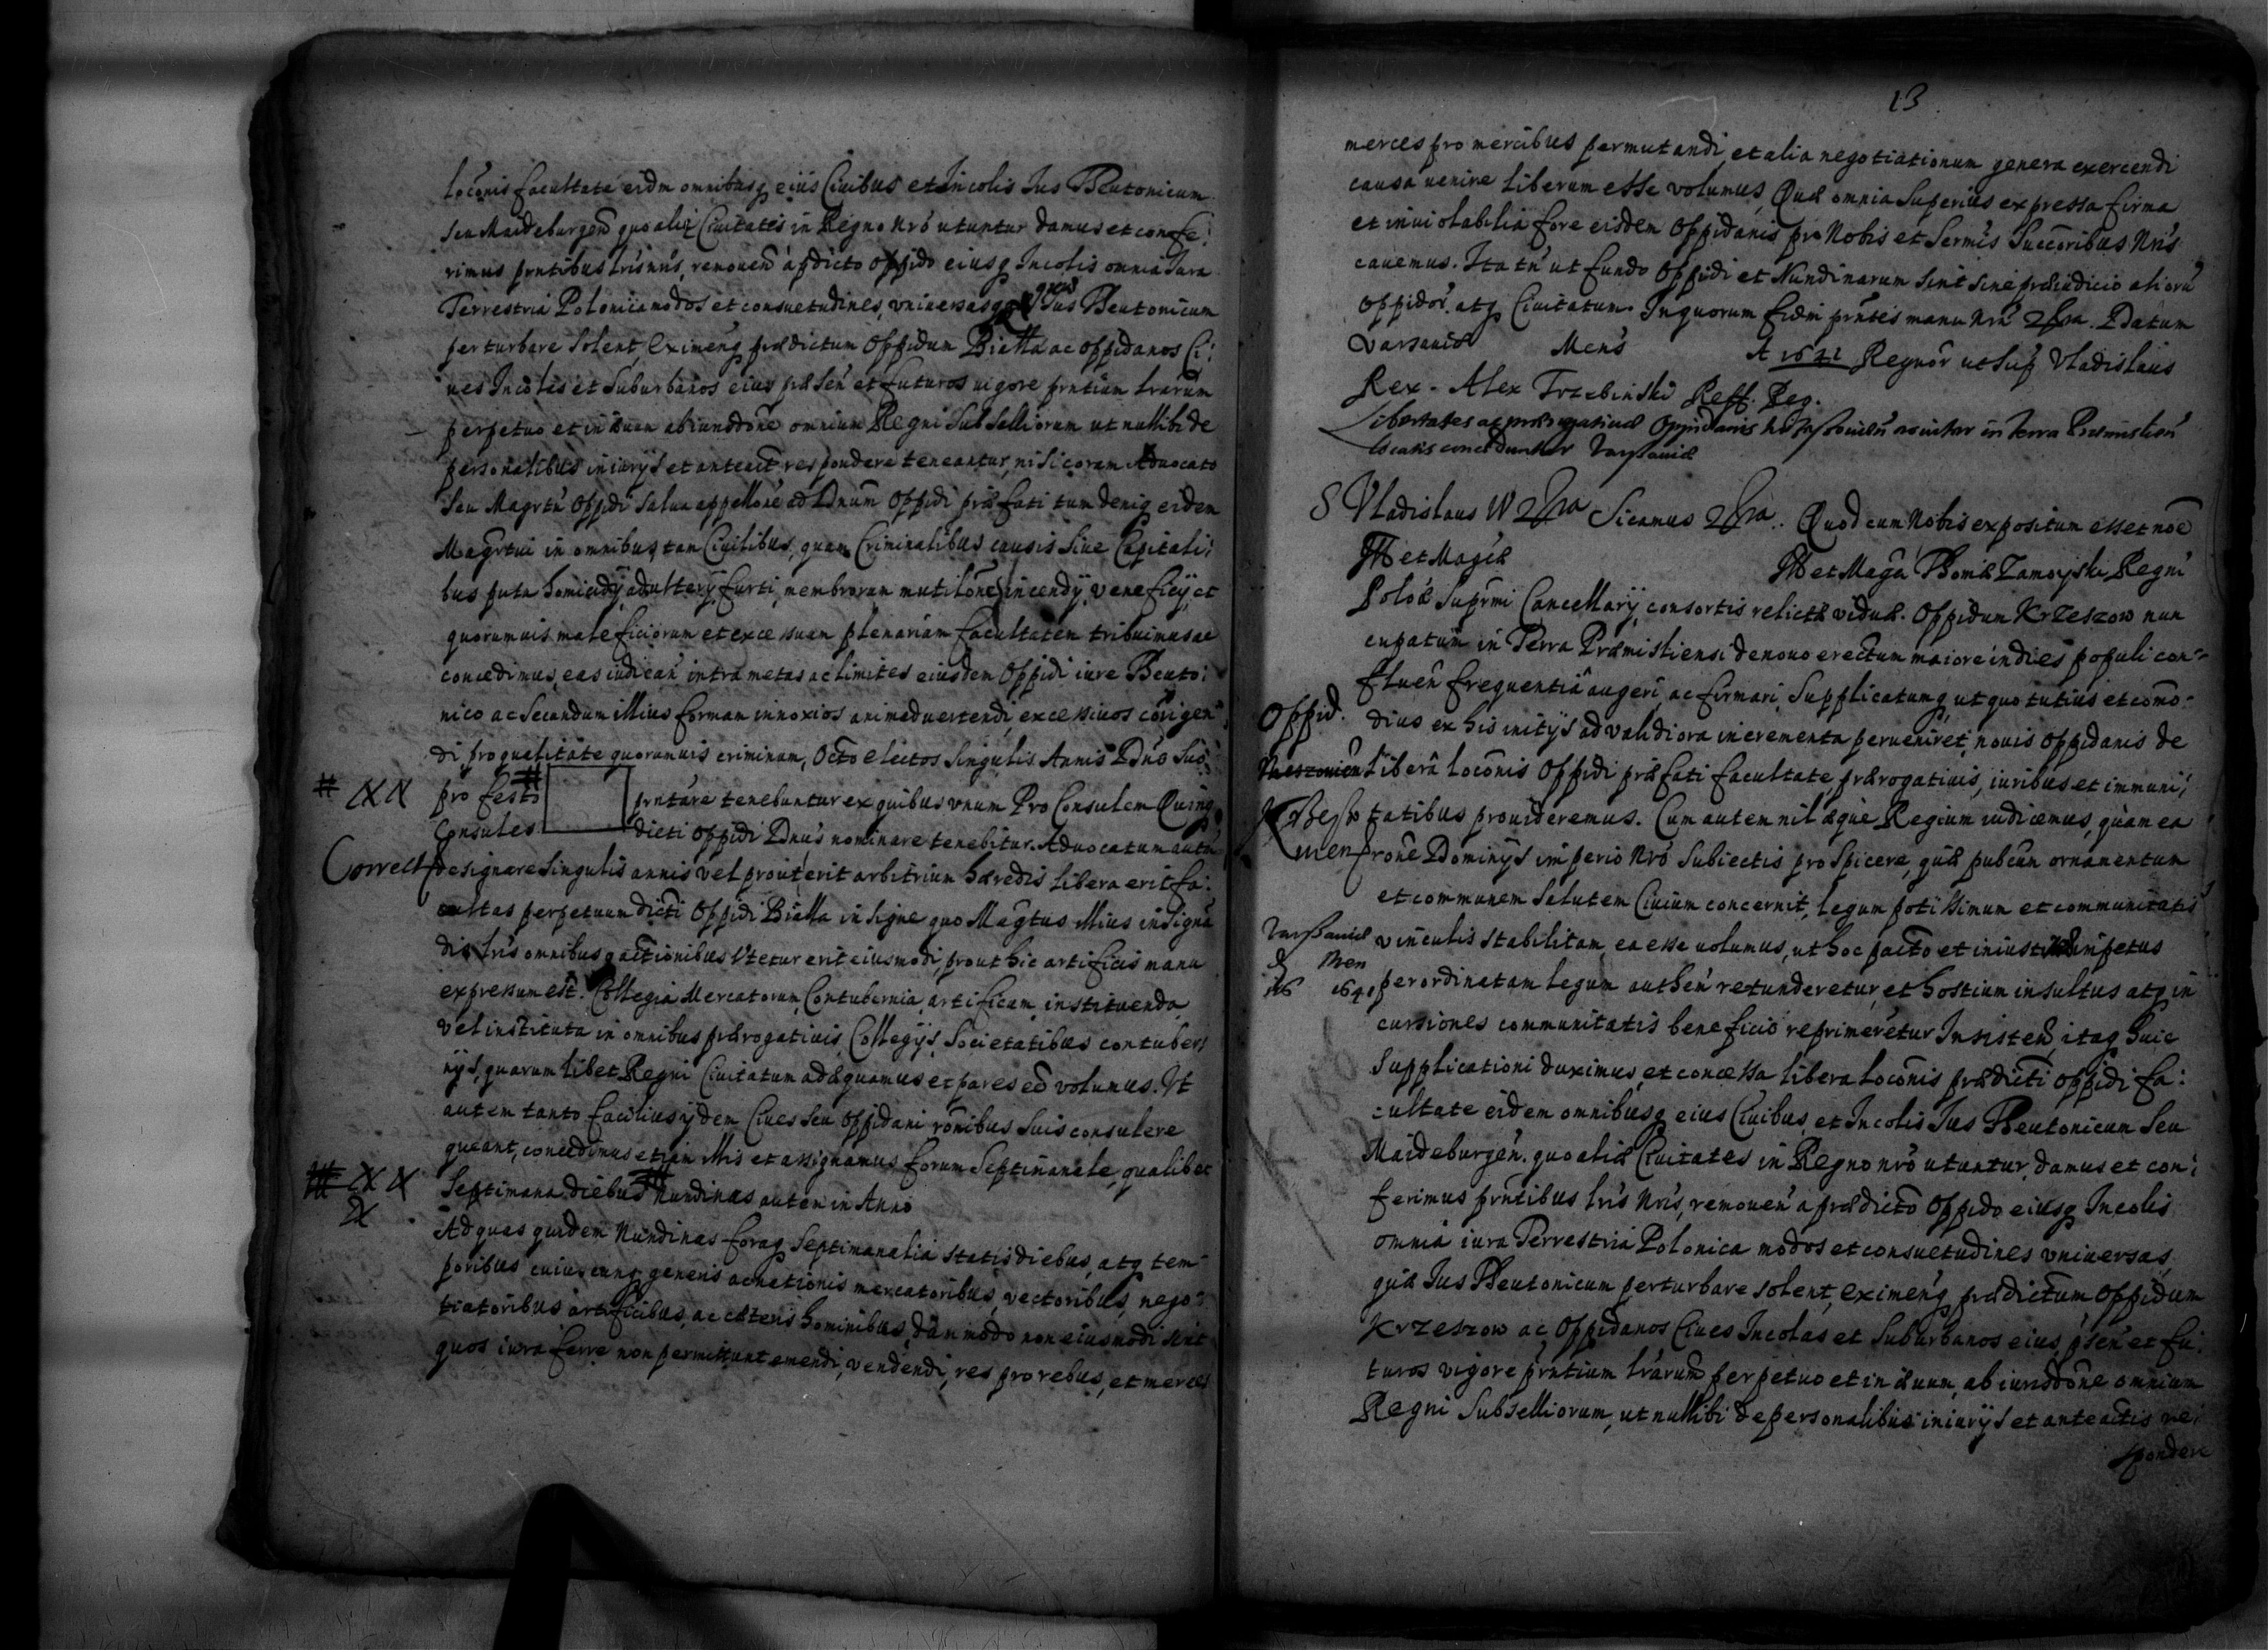 locónis facultate eidm omnibusq eius Ciuibus et Incolis Ius Theutonicum
seu Maideburgen quo aliæ Ciuitates in Regno nró utuntur damus et confe:
rimus prntibus lrís nrís, remouen a pdicto oppido eiusq Incolis omnia Iura
Terrestria Polonica modos et consuetudines, vniuersasq quæ Ius Theutonicum
perturbare solent, Eximenq prædictum Oppidum Bialla ac oppidanos Ci:
ues Incolas et Suburbanos eius præsen et futuros uigore prntium lrarum
perpetuo et in æuum ab iurisddone omnium Regni Subselliorum ut nullibi de
personalibus iniurijs et anteact respondere teneantur, nisi coram Aduocato
seu Magrtu Oppidi salua appellone ad Dnum Oppidi præfati tum deniq eidem
Magrtui in omnibus tam Ciuilibus, quam Criminalibus causis siue Capitali:
bus puta homicidij, adulterij, furti, membrorum mutilone, incendij, veneficij, et
quorumuis maleficiorum et excessuum plenariam facultatem tribuimus ac
concedimus, eas iudican intra metas ac limites eiusdem Oppidi iure Theuto:
nico ac secundum illius formam innoxios animaduertendi, excessiuos corrigen
di, pro qualitate quorumuis criminum, Octo electos singulis Annis Ddno suo
# pro festo # prntare tenebuntur ex quibus vnum Pro Consulem Quinq
Consules dicti Oppidi Dnus nominare tenebitur. Aduocatum autem
Correct designare singulis annis vel prout erit arbitrium hæredis libera erit fa:
cultas perpetuum dicti Oppidi Bialla insigne quo Magtus illius insignan
dis lris omnibusq actionibus Vtetur erit eiusmodi, prout hic artificis manu
expressum est. Collegia Mercatorum, Contubernia artificum, instituenda
vel instituta in omnibus prærogatiuis, Collegijs, Societatibus contuber:
nijs, quarumlibet Regni Ciuitatum adæquamus et pares eē volumus. Vt
autem tanto facilius ijdem Ciues seu Oppidani ronibus suis consulere
queant, concedimus etiam illis et assignamus forum Septimanale, qualibet
Septimana diebus nundinas autem in Anno
Ad quas quidem Nundinas foraq Septimanalia statis diebus, atq tem
poribus cuiuscunq generis ac nationis mercatoribus, vectoribus, nego:
tiatoribus artificibus, ac cæteris hominibus, dummodo non eiusmodi sint
quos iura ferre non permittunt emendi, vendendi, res pro rebus, et merces
13
merces pro mercibus permutandi, et alia negotiationum genera exercendi
causa uenire liberum esse volumus, Quæ omnia superius expressa firma
et inuiolabilia fore eisdem Oppidanis pro Nobis et Sermis Succoribus Nris
cauemus. Ita tn ut fundo Oppidi et Nundinarum sint sine præiudicio aliorū
Oppidor. atq Ciuitatum. In quorum fidm prntes manu nra 2ra. Datum
Varsauiæ Mens A 1641 Regnor ut sup Vladislaus
Rex - Alex Trzebinski Reff. Reg.
Libertates ac prærogatiuæ Oppidanis Krzessouien nouiter in Terra Præmislien
locatis conceduntur Varssauiæ
S Vladislaus IV 2ra Sicamus 2ra. Quod cum Nobis expositum esset noē
Ill et Magcæ Ill et Magci Thomæ Zamoyski Regni
Polóæ Suprmi Cancellarij, consortis relictæ viduæ. Oppidum Krzeszow nun
cupatum in Terra Præmisliensi denouo erectum maiore indies populi con-
fluen frequentiâ augeri, ac firmari, Supplicatumq, ut quo tutius et como-
Oppid. dius ex his initijs ad validiora incrementa perueniret, nouis Oppidanis de
liberâ locónis Oppidi præfati facultate, prærogatiuis, iuribus et immuni:
Krzesso tatibus prouideremus. Cum autem nil æque Regium iudicemus, quam ea
uien rone Dominijs imperio nró subiectis prospicere, quæ pubcūm ornamentum
et communem salutem Ciuium concernit, legum potissimum et communitatis
Varssauiæ vinculis stabilitam, ea esse uolumus, ut hoc pacto et iniustitiæ impetus
d Men
1640 per ordinatam legum authen retunderetur, et hostium insultus atq in
cursiones communitatis beneficio reprimeretur Insisten itaq huic
supplicationi duximus, et concessa libera locónis prædicti oppidi fa:
cultate eidem omnibusq eius Ciuibus, et Incolis Ius Theutonicum seu
Maideburgen. quo aliæ Ciuitates in Regno nró utuntur, damus et con:
ferimus prntibus lris Nris, remouen a prædicto Oppido eiusq Incolis
omnia iura Terrestria Polonica modos et consuetudines vniuersas,
quæ Ius Theutonicum perturbare solent, eximenq prædictum Oppidum
Krzeszow ac Oppidanos Ciues Incolas et suburbanos eius, psen et fu:
turos vigore prntium lrarum perpetuo et in æuum, ab iurisddone omnium
Regni Subselliorum, ut nullibi de personalibus iniurijs et anteactis re:
spondere